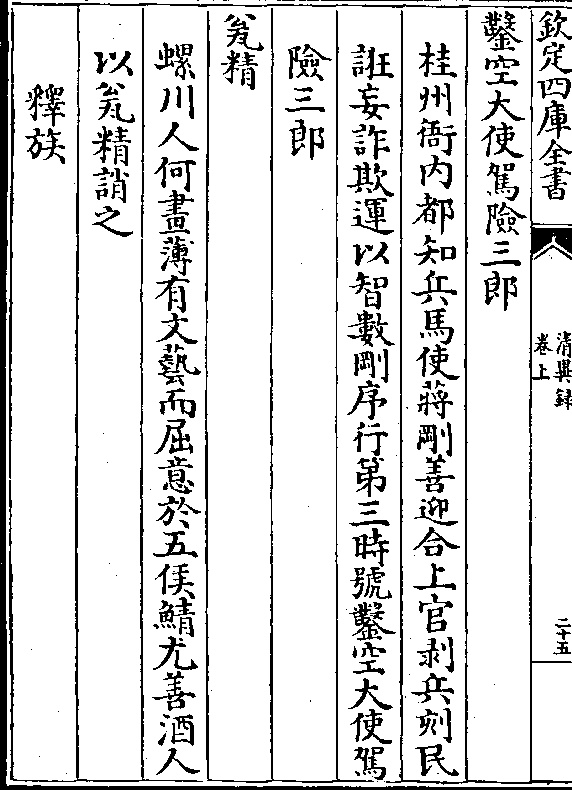 欽定四庫全書
清異録
卷上
二十五
鑿空大使駕險三郎
桂州衙内都知兵馬使蔣剛善迎合上官剥兵刻民
誑妄詐欺運以智數剛序行第三時號鑿空大使駕
險三郎
瓮精
螺川人何畫薄有文藝而屈意於五侯鯖尤善酒人
以瓮精誚之
釋族